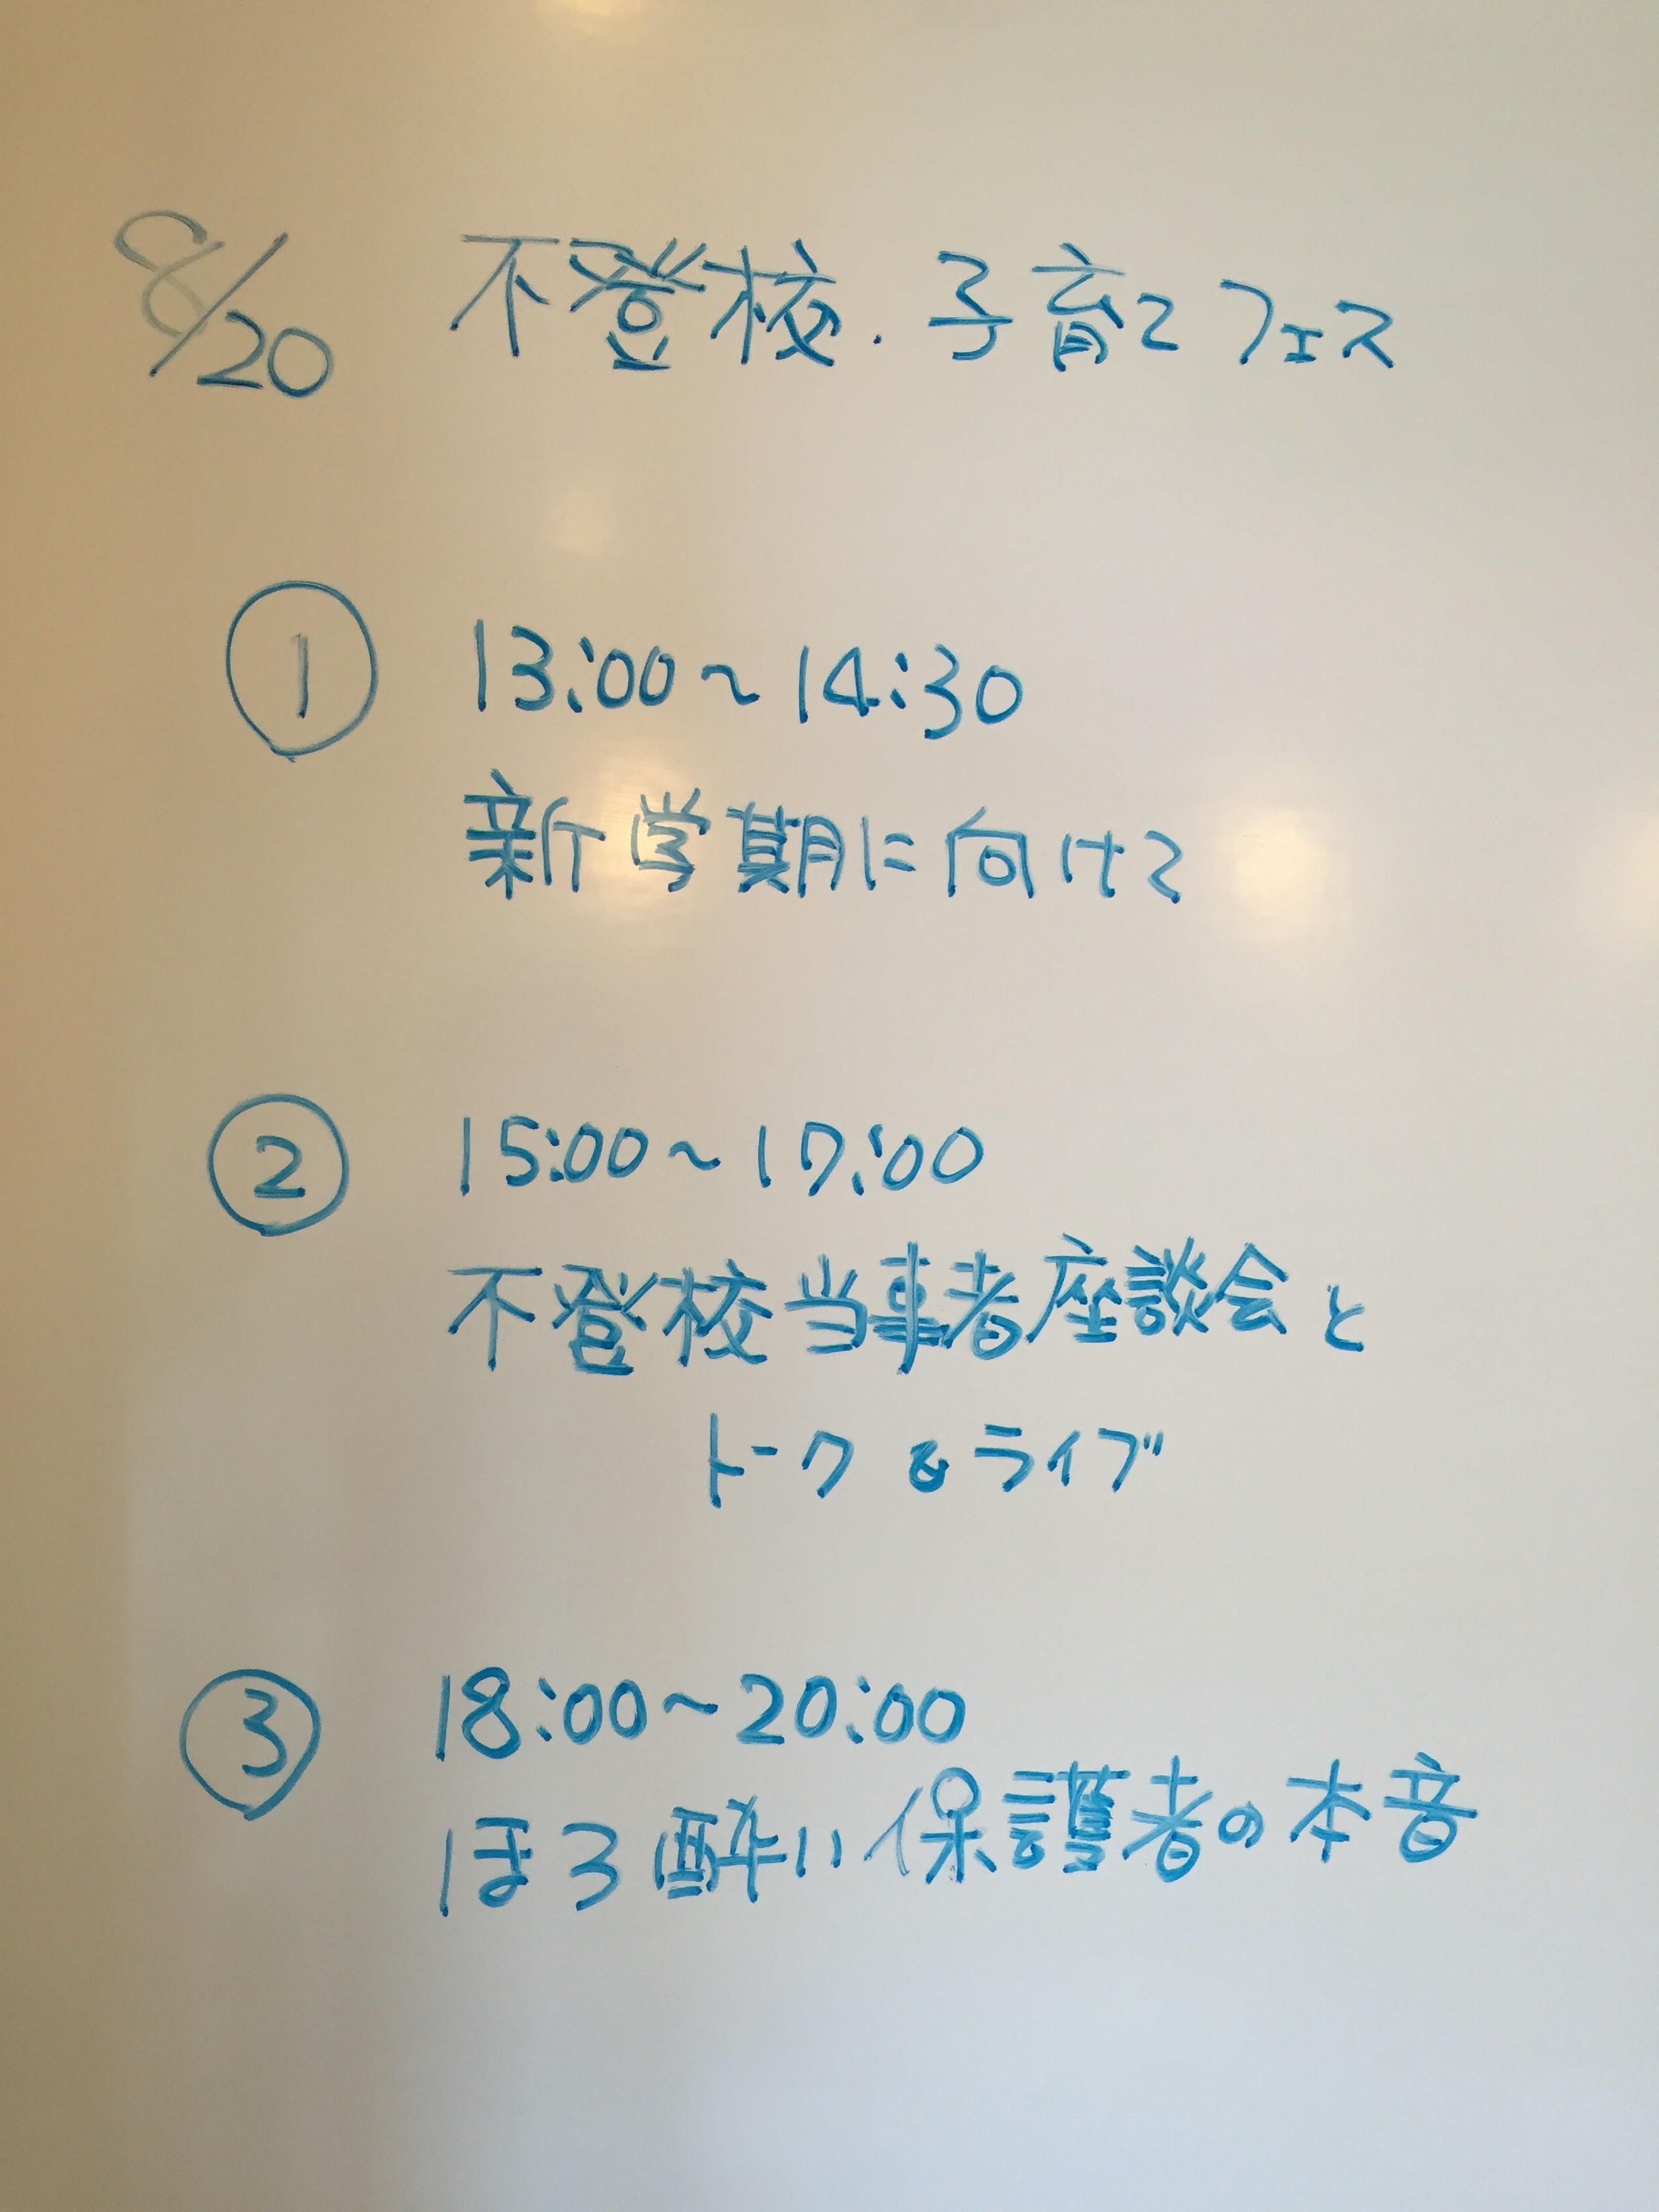 8/20 不登校・子育てフェス
① 13:00～14:30
新学期に向けて
② 15:00～17:00
不登校当事者座談会と
トーク&ライブ
③ 18:00～20:00
ほろ酔い保護者の本音